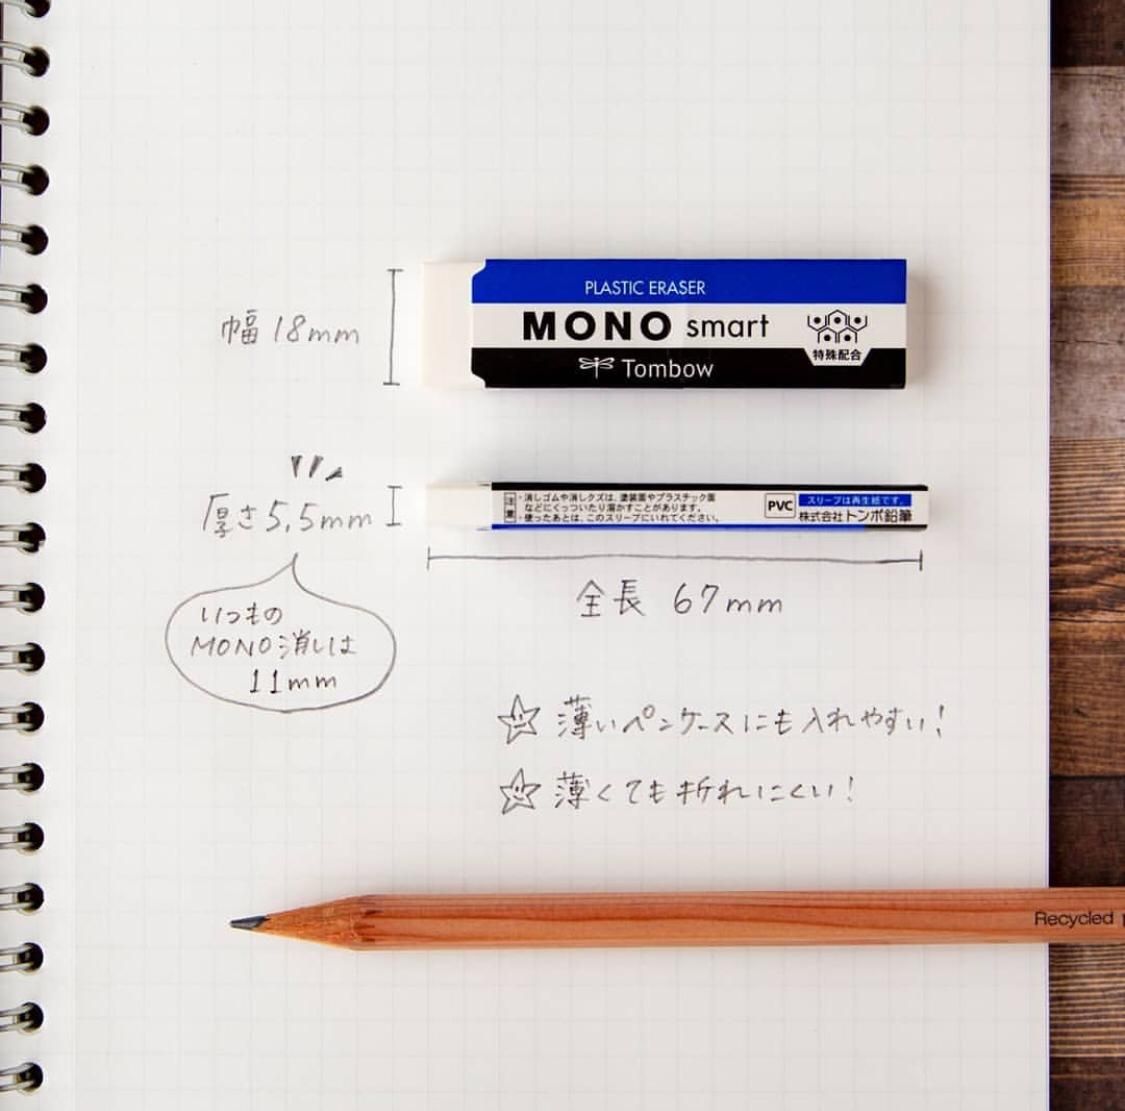 PLASTIC ERASER
MONO smart
特殊配合
Tombow
幅 18mm
注意
・消しゴムや消しクズは、塗装面やプラスチック面
などにくっついたり溶かすことがあります。
・使ったあとは、このスリーブにいれてください。
PVC
スリーブは再生紙です。
株式会社トンボ鉛筆
厚さ5,5mm
全長 67mm
いつもの
MONO消しは
11mm
☆ 薄いペンケースにも入れやすい!
☆ 薄くても折れにくい!
Recycled